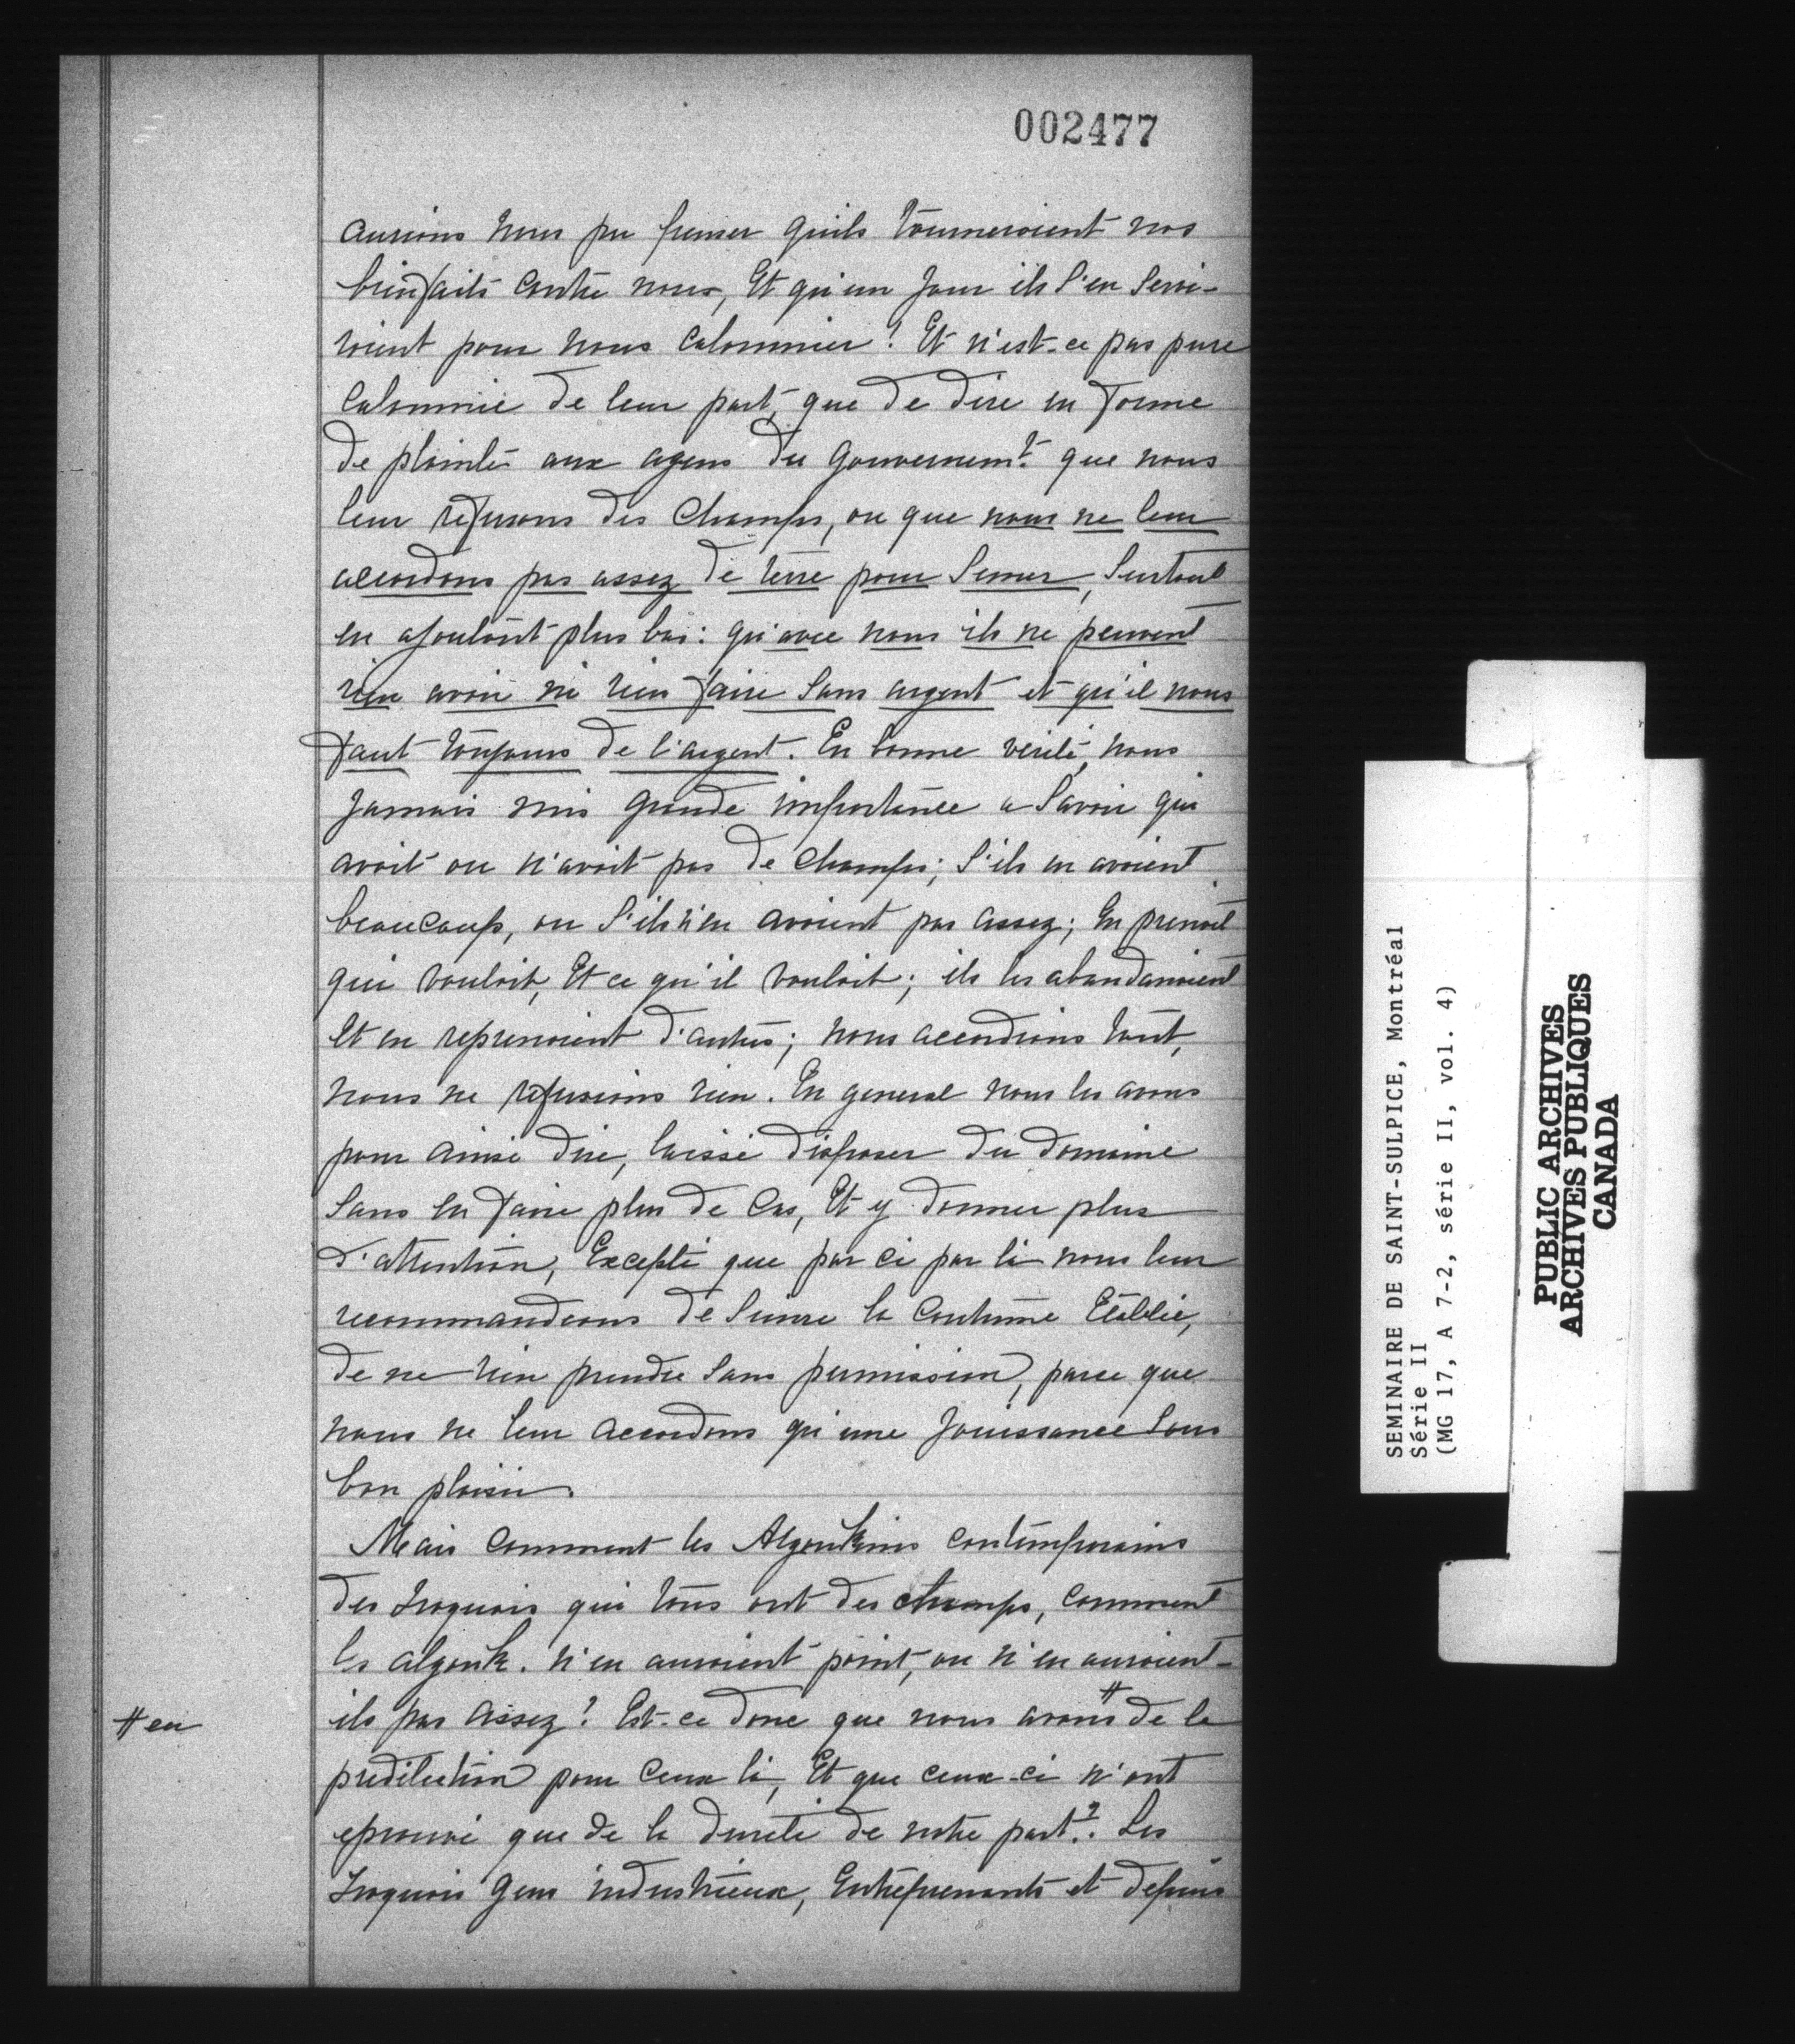 002477
aurions nous pu penser qu'ils tourneroient nos
bienfaits contre nous, Et qu'un jour ils S'en Servi-
roient pour nous calomnier? Et n'est-ce pas pure
Calomnie de leur part, que de dire en forme
de plainte aux agens du Gouvernemt. que nous
leur refusons des Champs, ou que nous ne leur
accordons pas assez de terre pour Semer, Surtout
en ajoutant plus bas: qu'avec nous ils ne peuvent
rien avoir ni rien faire Sans argent et qu'il nous
faut toujours de l'argent. En bonne verité, nous
Jamais mis grande importance a Savoir qui
avoit ou n'avoit pas de Champs; S'ils en avoient
beaucoup, ou S'ils n'en avoient pas assez; En prenoit
qui vouloit, Et ce qu'il vouloit; ils les abandonnoient
Et en reprenoient d'autres; nous accordions tout,
nous ne refusions rien. En general nous les avons
pour ainsi dire, laissé disposer du domaine
Sans en faire plus de Cas, Et y donner plus
d'attention, Excepté que par ci par là nous leur
recommandions de Suivre la Coutume Etablie,
de ne rien prendre Sans permission, parce que
nous ne leur accordons qu'une Jouissance Sous
bon plaisir.
Mais comment les Algonkins contemporains
des Iroquois qui tous ont des champs, comment
les algonk. n'en auroient point, ou n'en auroient-
ils pas assez? Est-ce donc que nous avons # de la
# eu
predilection pour Ceux là, Et que ceux-ci n'ont
eprouvé que de la dureté de notre part?. Les
Iroquois Gens industrieux, Entreprenants et depuis
SEMINAIRE DE SAINT-SULPICE, Montréal
Série II
(MG 17, A 7-2, série II, vol. 4)
PUBLIC ARCHIVES
ARCHIVES PUBLIQUES
CANADA